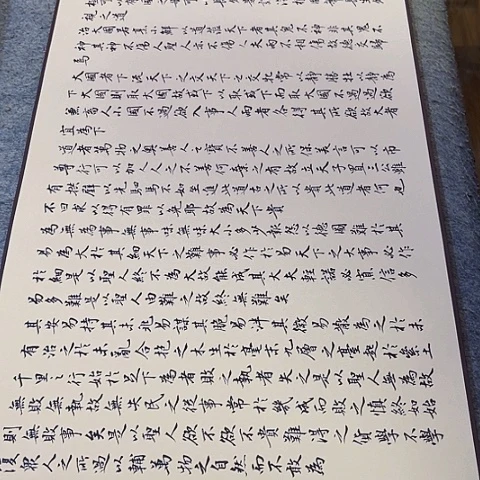 視之道
治大國若烹小鮮以道治天下者其鬼不神非其鬼不
神其神不傷人聖人亦不傷人夫兩不相傷故德交歸
焉
大國者下流天下之交天下之交牝常以靜勝牡以靜為
下大國則取大國故或下以取或下而取大國不過過欲
兼畜人小國不過欲入事人兩者各得其所欲故大者
宜為下
道者萬物之奧善人之寶不善人之所保美言可以市
尊行可以加人人之不善何棄之有故立天子置三公雖
有拱璧以先駟馬不如坐進此道古之所以貴此道者何也
不曰求以得有罪以免耶故為天下貴
為無為事無事味無味大小多少報怨以德圖難於其
易為大於其細天下之難事必作於易天下之大事必作
於細是以聖人終不為大故能成其大夫輕諾必寡信多
易多難是以聖人由難之故終無難矣
其安易持其未兆易謀其脆易泮其微易散為之於未
有治之於未亂合抱之木生於毫末九層之臺起於累土
千里之行始於足下為者敗之執者失之是以聖人無為故
無敗無執故無失民之從事常於幾成而敗之慎終如始
則無敗事矣是以聖人欲不欲不貴難得之貨學不學
復眾人之所過以輔萬物之自然而不敢為